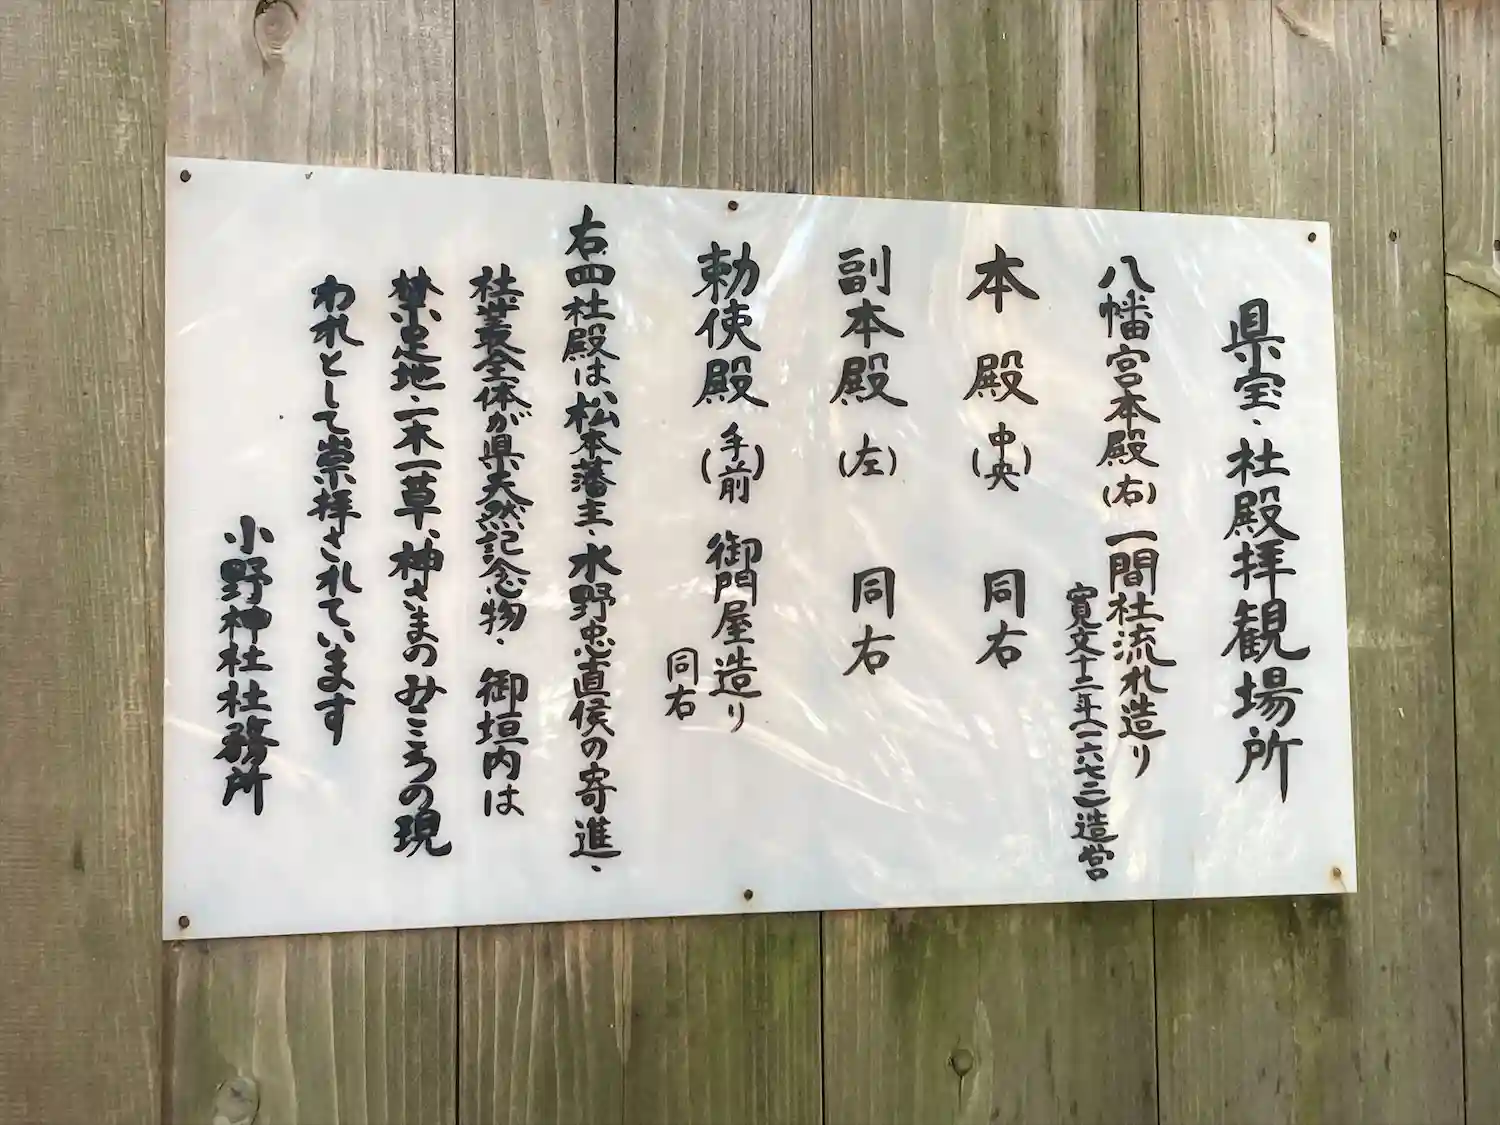 県宝、社殿拝観場所
八幡宮本殿(右) 一間社流れ造り
寛文十二年(一六七二)造営
本殿(中央) 同右
副本殿(左) 同右
勅使殿(手前) 御門屋造り
同右
右四社殿は、松本藩主、水野忠直侯の寄進、
社叢全体が県天然記念物、御垣内は
禁足地、一木一草、神さまのみこころの現
われとして崇拝されています
小野神社社務所